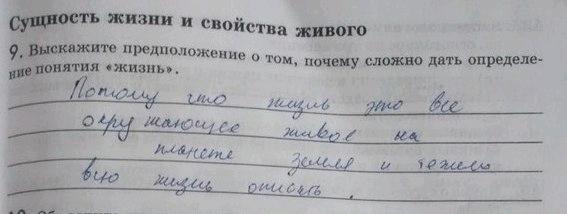 Сущность жизни и свойства живого
9. Выскажите предположение о том, почему сложно дать определе-
ние понятия «жизнь».
Потому что жизнь это все
окружающее живое на
планете Земля и тяжело
всю жизнь описать.